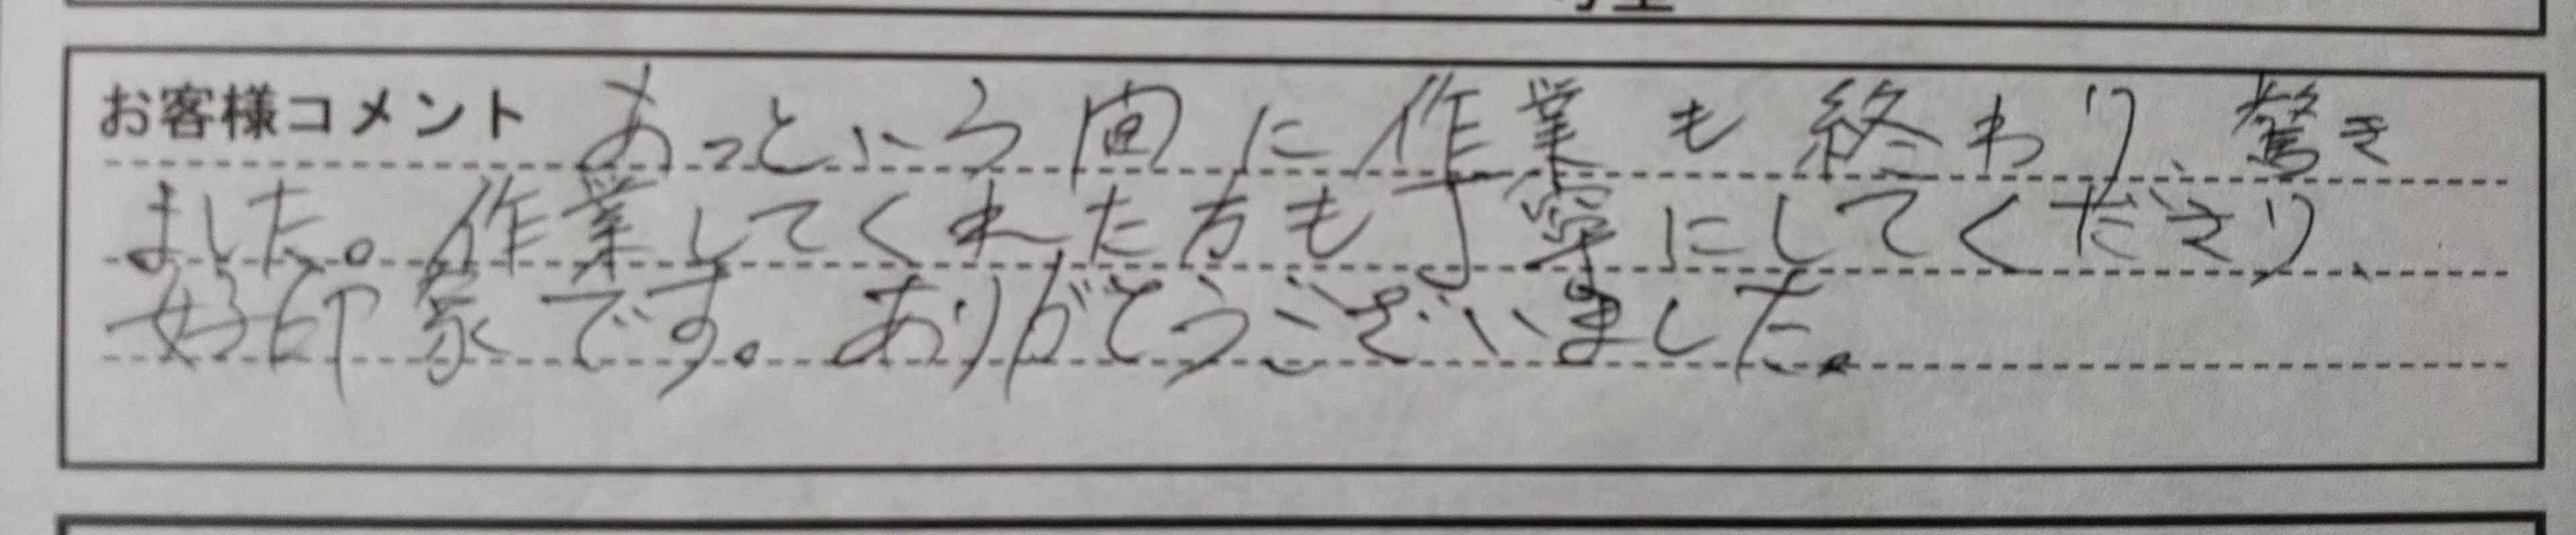 お客様コメント あっという間に作業も終わり、驚き
ました。作業してくれた方も丁寧にしてくださり、
好印象です。ありがとうございました。